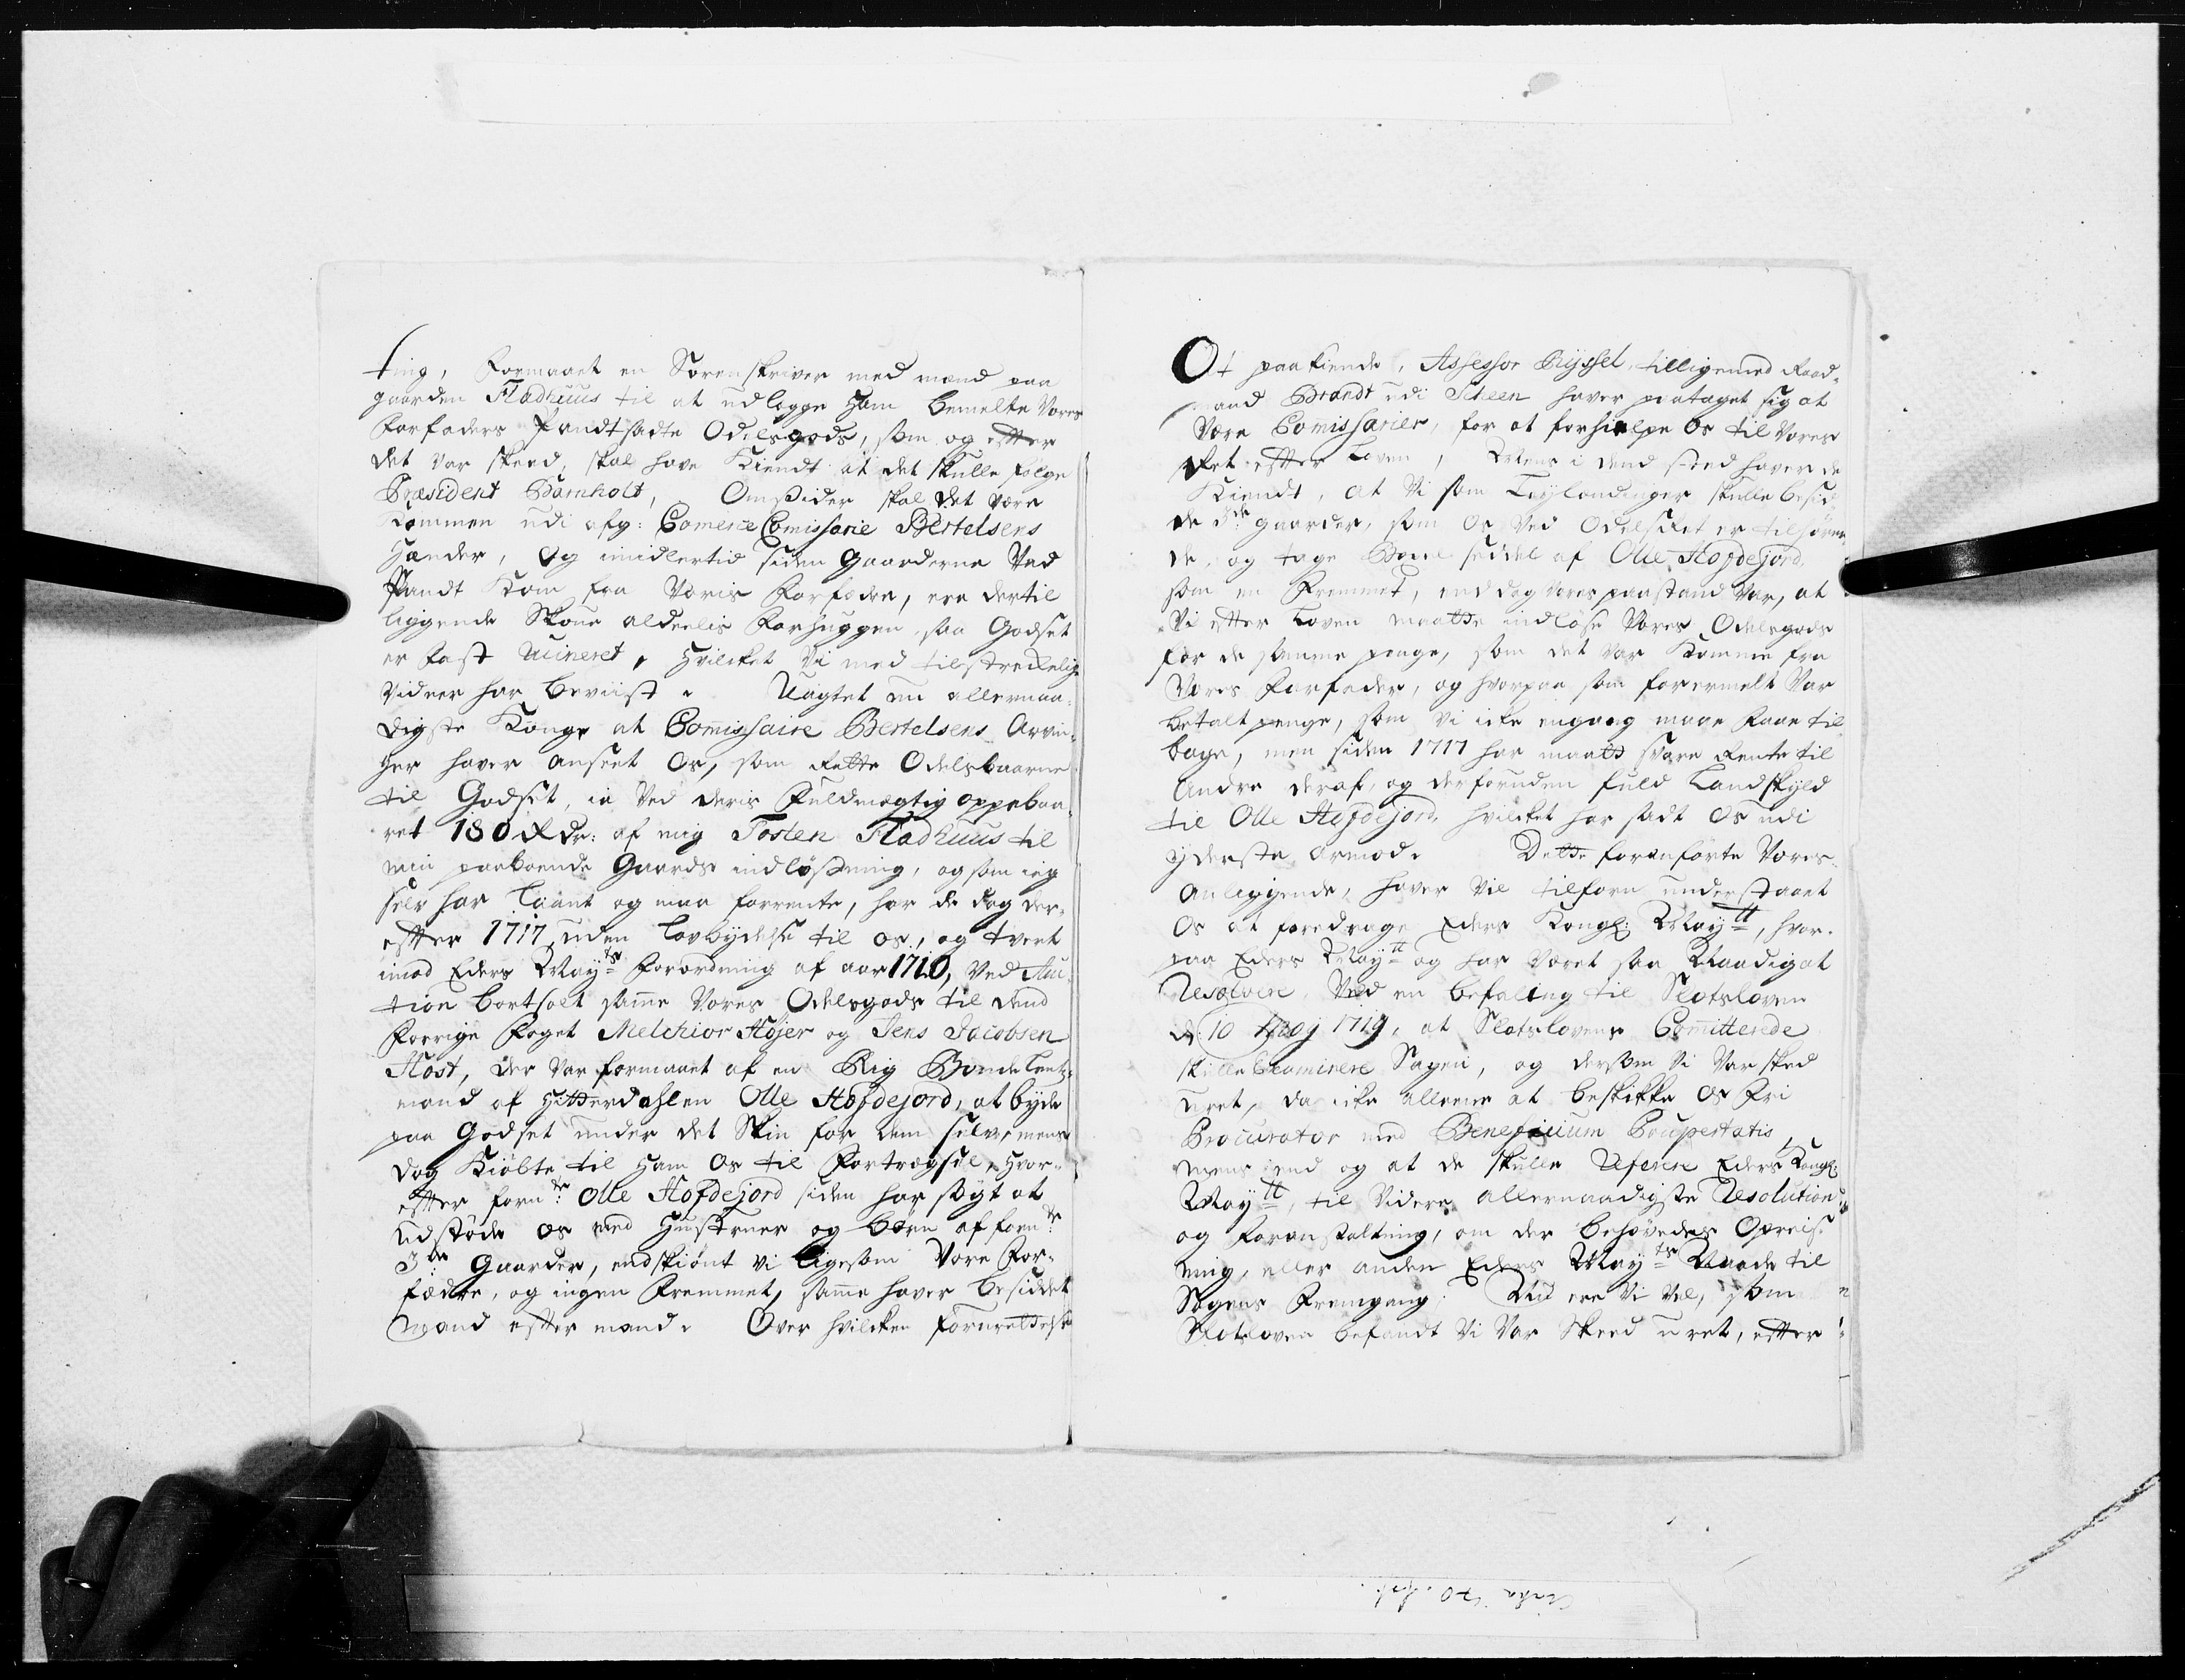 ting, formaaet en Sorenskriver med mænd paa
gaarden Fladhuus til at udlegge ham bemelte Vores
Forfaders Pandtsadte Odelsgods, som og efter
det var skeed, skal have Kiendt at det skulle følge
Præsident Barnholt, Omsider skal det være
Kommen udi afg: Comerce Comissarie Bertelsens
Hænder, Og imidlertid siden gaarderne Ved
Pandt Kom fra Voris Forfader, ere dertil
liggende Skoue aldeelis Forhuggen, saa Godset
er fast ruineret, Hvilcket Vi med tilstreckelig
Vidner har beviist. Uagtet nu allernaa-
digste Konge at Comissaire Bertelsens Arvin-
ger haver anseet Os, som rette Odelsbaarne
til Godset, ia Ved deris Fuldmægtig oppebaa-
ret 180 Rdr: af mig Tosten Fladhuus til
min paaboende Gaards indløsning, og som ieg
selv har laant og maa forrente, har de dog der-
efter 1717 uden lovbydelse til os, og tvert
imod Eders May.ts Forordning af aar 1710, Ved Au-
tion bortsolt samme Vores Odelsgods til dend
Forrige Foget Melchior Højer og Jens Jacobsen
Høst, der var formaaet af en Rig Bonde Lents-
mand af Hitterdahlen Olle Hofdejord, at byde
paa Godset under det Skin for dem selv, mens
dog Kiøbte til ham Os til Fortrægsel, Hvor-
efter forn.de Olle Hofdejord siden har søgt at
udstøde os med Hustruer og børn af forn.de
3.de Gaarder, endskiønt vi ligesom Vore For-
fædre, og ingen Fremmet, samme haver besiddet
Mand efter mand. Over hvilcken fornrettelse
At paakiende, Assessor Ryssel tilligemed Raad-
mand Brandt udi Scheen haver paataget sig at
Være Comissarier, for at forhielpe Os til Vores
Ret efter Loven, Mens i dend sted haver de
Kiendt, at Vi som Leylendinger skulle besid-
de 3.de gaarder, som Os Ved Odelsret er tilhøren-
de, og tage Bøxel seddel af Olle Hofdejord,
som en Fremmet, end dog Vores paastand Var, at
Vi efter Loven maatte indløse Vores Odelsgods
for de samme penge, som det var Kommen fra
Vores Forfader, og hvorpaa som forermelt Var
betalt penge, som Vi icke engang maae Faae til
bage, men siden 1717 har maatt svare Rente til
Andre deraf, og derforuden fuld Landskyld
til Olle Hofdejord, hvilcket har sadt Os udi
yderste Armod. Dette foranførte Vores
Anliggende, haver Vie tilforn understaaet
Os at foredrage Eders Kongl: May.tt, hvor-
paa Eders May.tt og har Været saa Naadig at
Resolvere Ved en befaling til Slotsloven
d: 10 Maj 1719, at Slotslovens Comitterede
skulle Examinere Sagen, og dersom Vi var sked
uret, da icke alleene at beskikke Os Fri
Procurator med Beneficium Paupertatis,
mens end og at de skulle Referere Eders Kongl:
May.tt, til Videre allernaadigste Resolution
og foranstaltning, om der behøvedes Opreis-
ning, eller anden Eders May.ts Naade til
Sagens Fremgang: Nu ere Vi Vel, som
Slotsloven befandt Vi Var Skeed uret, efter